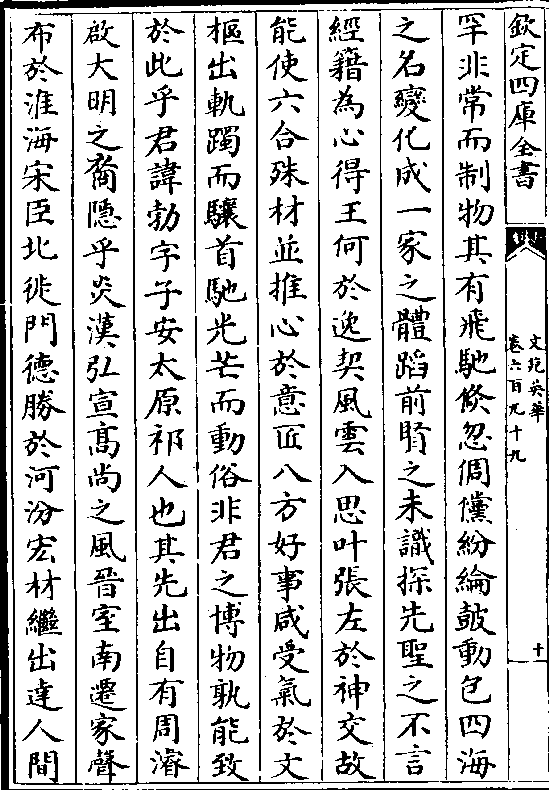 欽定四庫全書
文苑英華
卷六百九十九
十
罕非常而制物其有飛馳倏忽倜儻紛綸皷動包四海
之名變化成一家之體蹈前賢之未識探先聖之不言
經籍為心得王何於逸契風雲入思叶張左於神交故
能使六合殊材並推心於意匠八方好事咸受氣於文
樞出軌躅而驤首馳光芒而動俗非君之博物孰能致
於此乎君諱勃字子安太原祁人也其先出自有周濬
啟大明之裔隱乎炎漢弘宣髙尚之風晉室南遷家聲
布於淮海宋臣北徙門德勝於河汾宏材繼出達人間